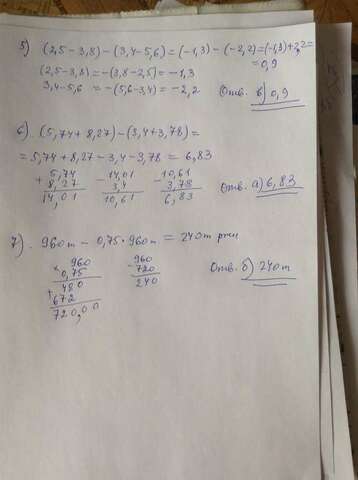 5) (2,5-3,8)-(3,4-5,6)=(-1,3)-(-2,2)=(-1,3)+2,2=
=0,9
(2,5-3,8)=-(3,8-2,5)=-1,3
3,4-5,6=-(5,6-3,4)=-2,2
Отв. в) 0,9
6). (5,74+8,27)-(3,4+3,78)=
=5,74+8,27-3,4-3,78=6,83
+ 5,74 - 14,01 - 10,61
8,27 3,4 3,78
14,01 10,61 6,83
Отв. а) 6,83
7). 960т-0,75*960т=240т
× 960 - 960
0,75 720
480 240
+ 672
720,00
Отв. б) 240т